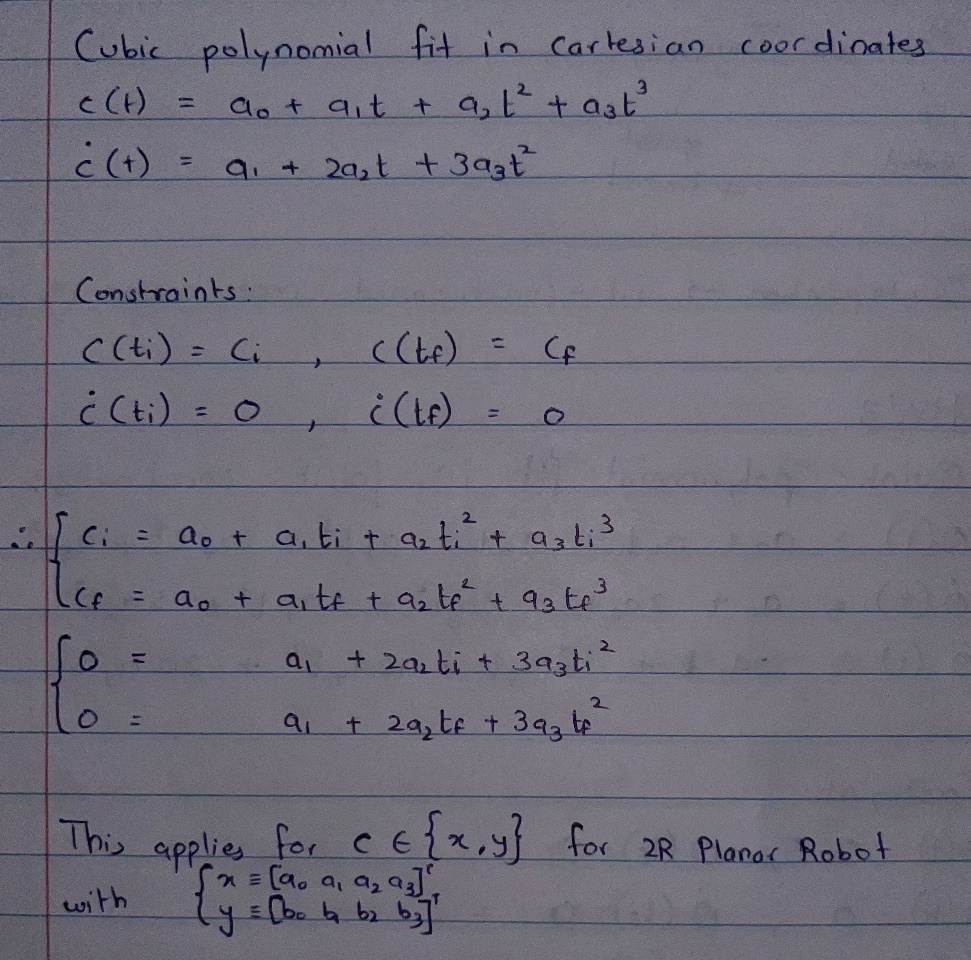 Cubic polynomial fit in cartesian coordinates
c(t) = a₀ + a₁t + a₂t² + a₃t³
ċ(t) = a₁ + 2a₂t + 3a₃t²
Constraints:
c(ti) = ci , c(tf) = cf
ċ(ti) = 0 , ċ(tf) = 0
∴ { ci = a₀ + a₁ti + a₂ti² + a₃ti³
cf = a₀ + a₁tf + a₂tf² + a₃tf³
{ 0 = a₁ + 2a₂ti + 3a₃ti²
0 = a₁ + 2a₂tf + 3a₃tf²
This applies for c ∈ {x,y} for 2R Planar Robot
with { x ≡ [a₀ a₁ a₂ a₃]ᵀ
y ≡ [b₀ b₁ b₂ b₃]ᵀ